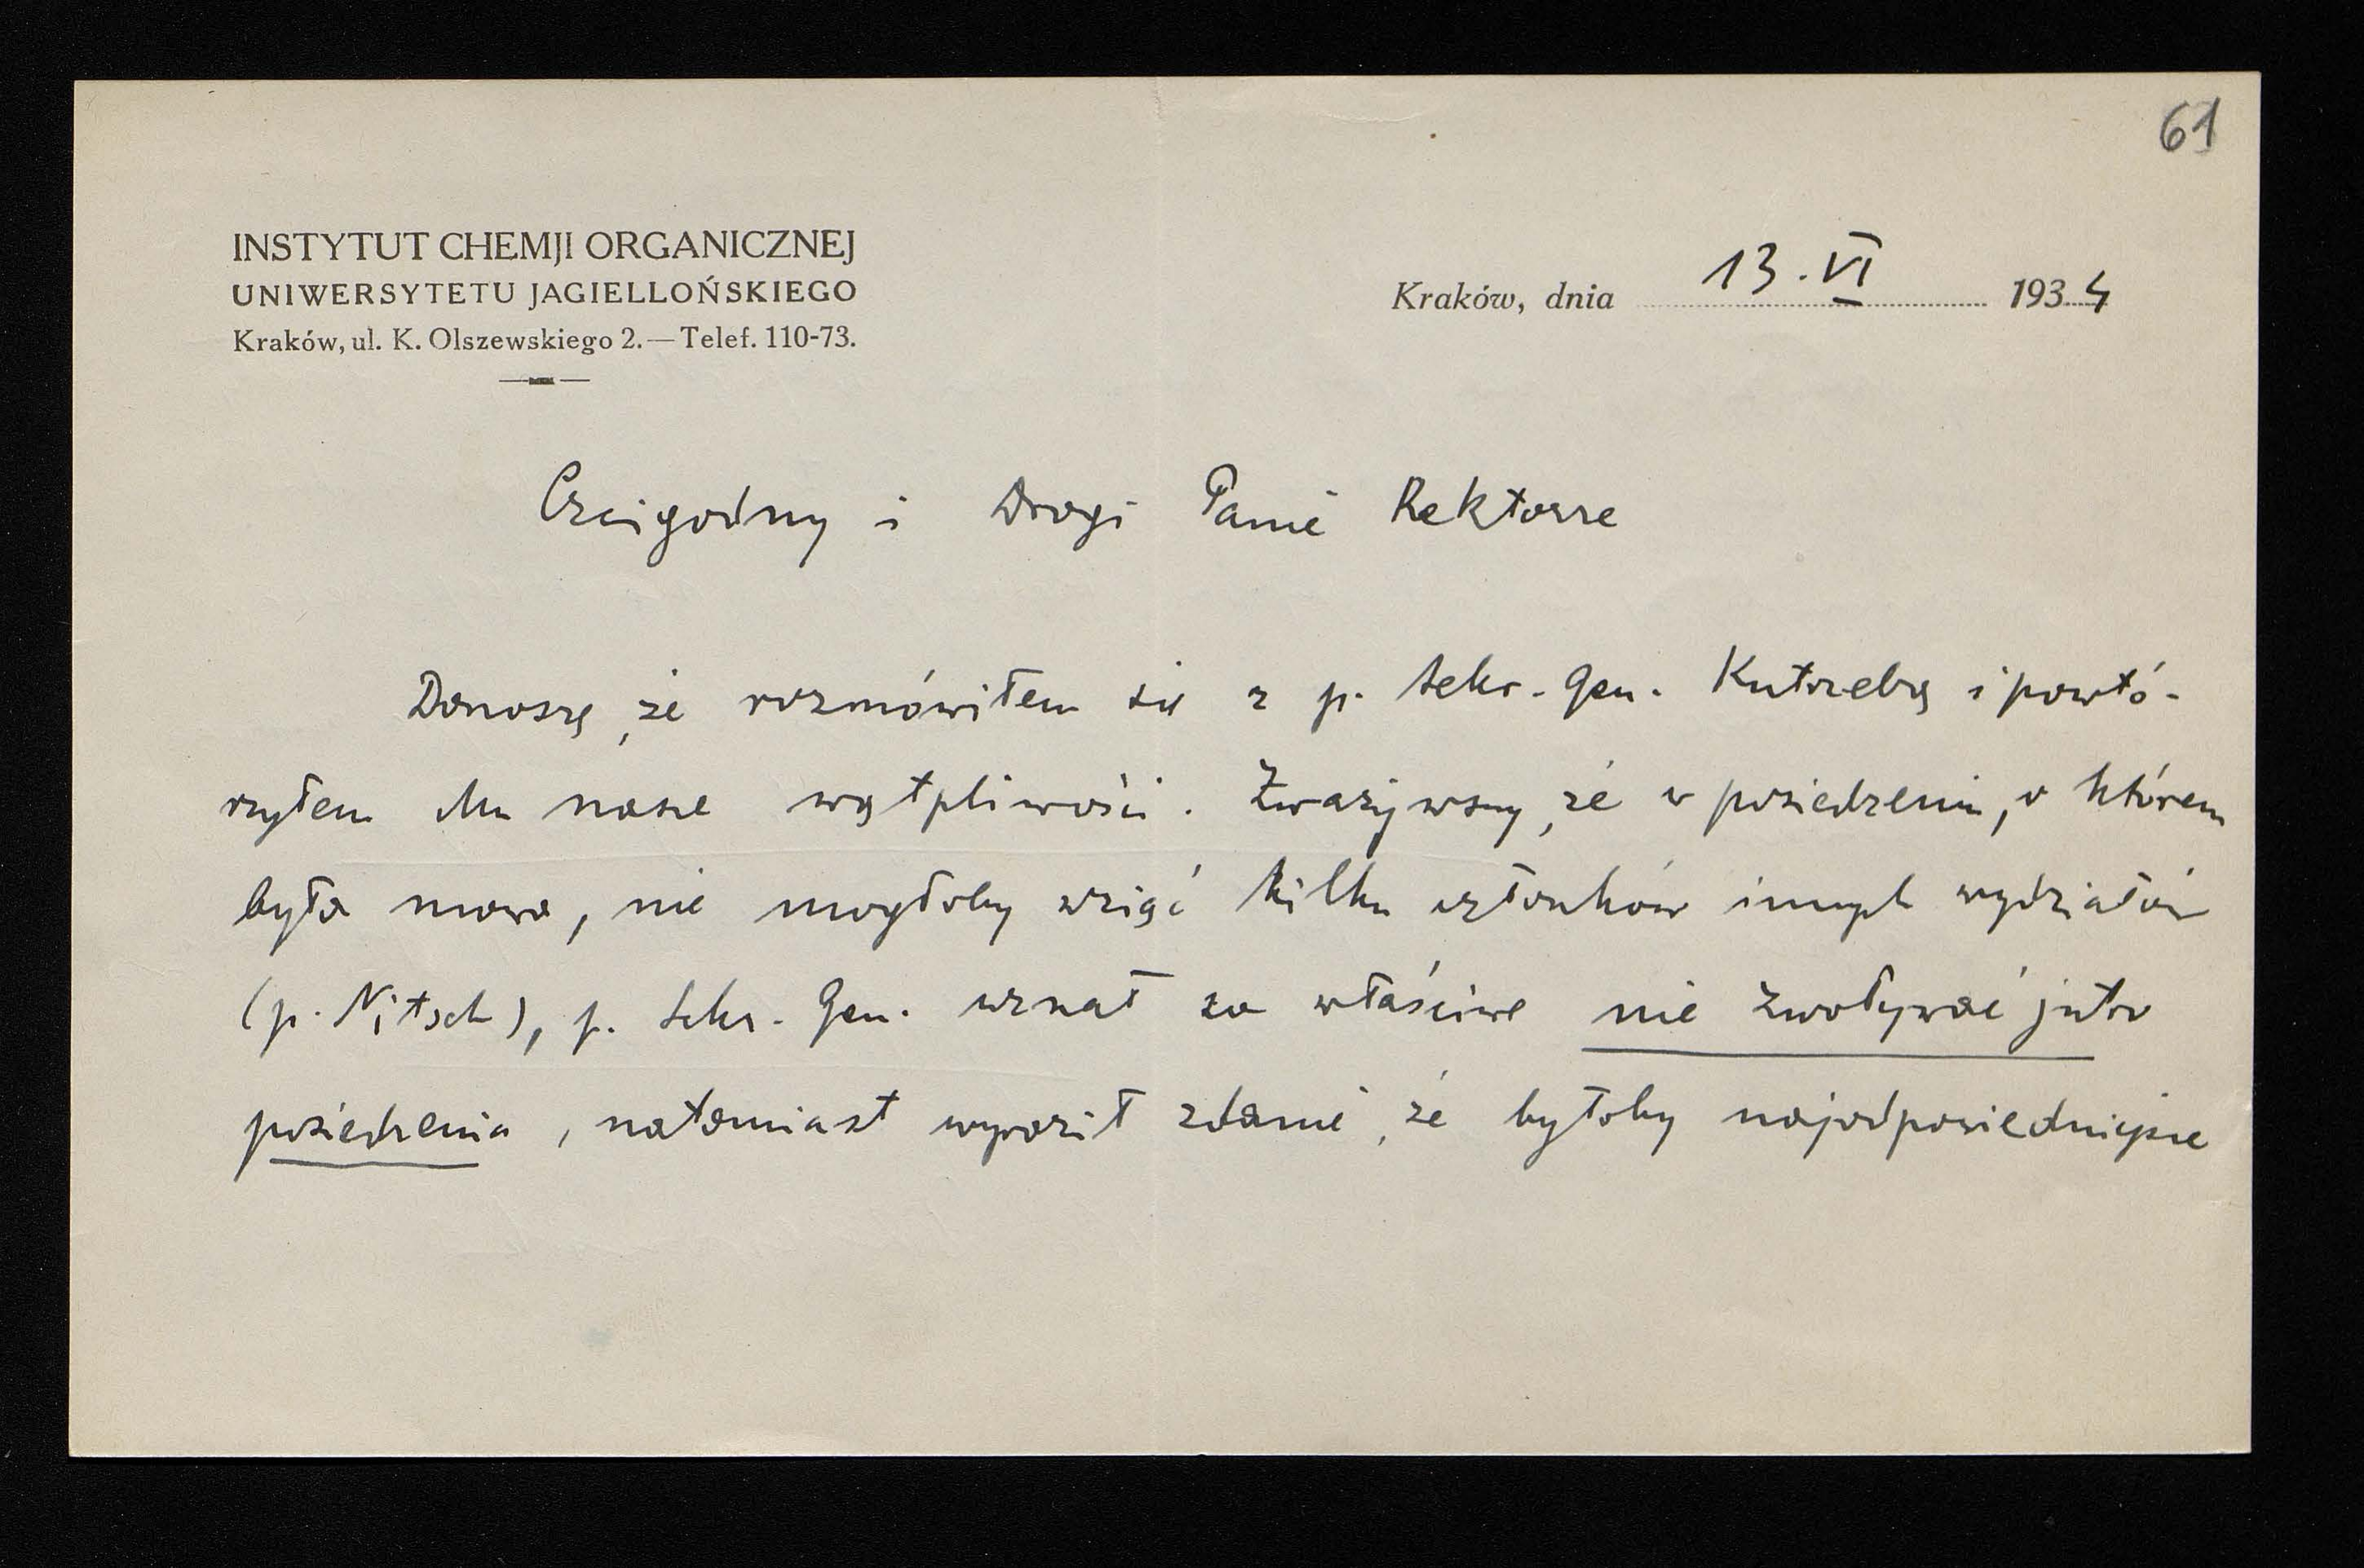 61
INSTYTUT CHEMJI ORGANICZNEJ
UNIWERSYTETU JAGIELLOŃSKIEGO
Kraków, ul. K. Olszewskiego 2. — Telef. 110-73.
Kraków, dnia 13.VI 1934
Czcigodny i Drogi Panie Rektorze
Donoszę, że rozmówiłem się z p. sekr. Gen. Kutrzebą i powtó-
rzyłem Mu nasze wątpliwości. Zważywszy, że w posiedzeniu, o którem
była mowa, nie mogłoby wziąć kilku członków innych wydziałów
(p. Nitsch), p. sekr. Gen. uznał za właściwe nie zwoływać jutro
posiedzenia, natomiast wyraził zdanie, że byłoby najodpowiedniejsze